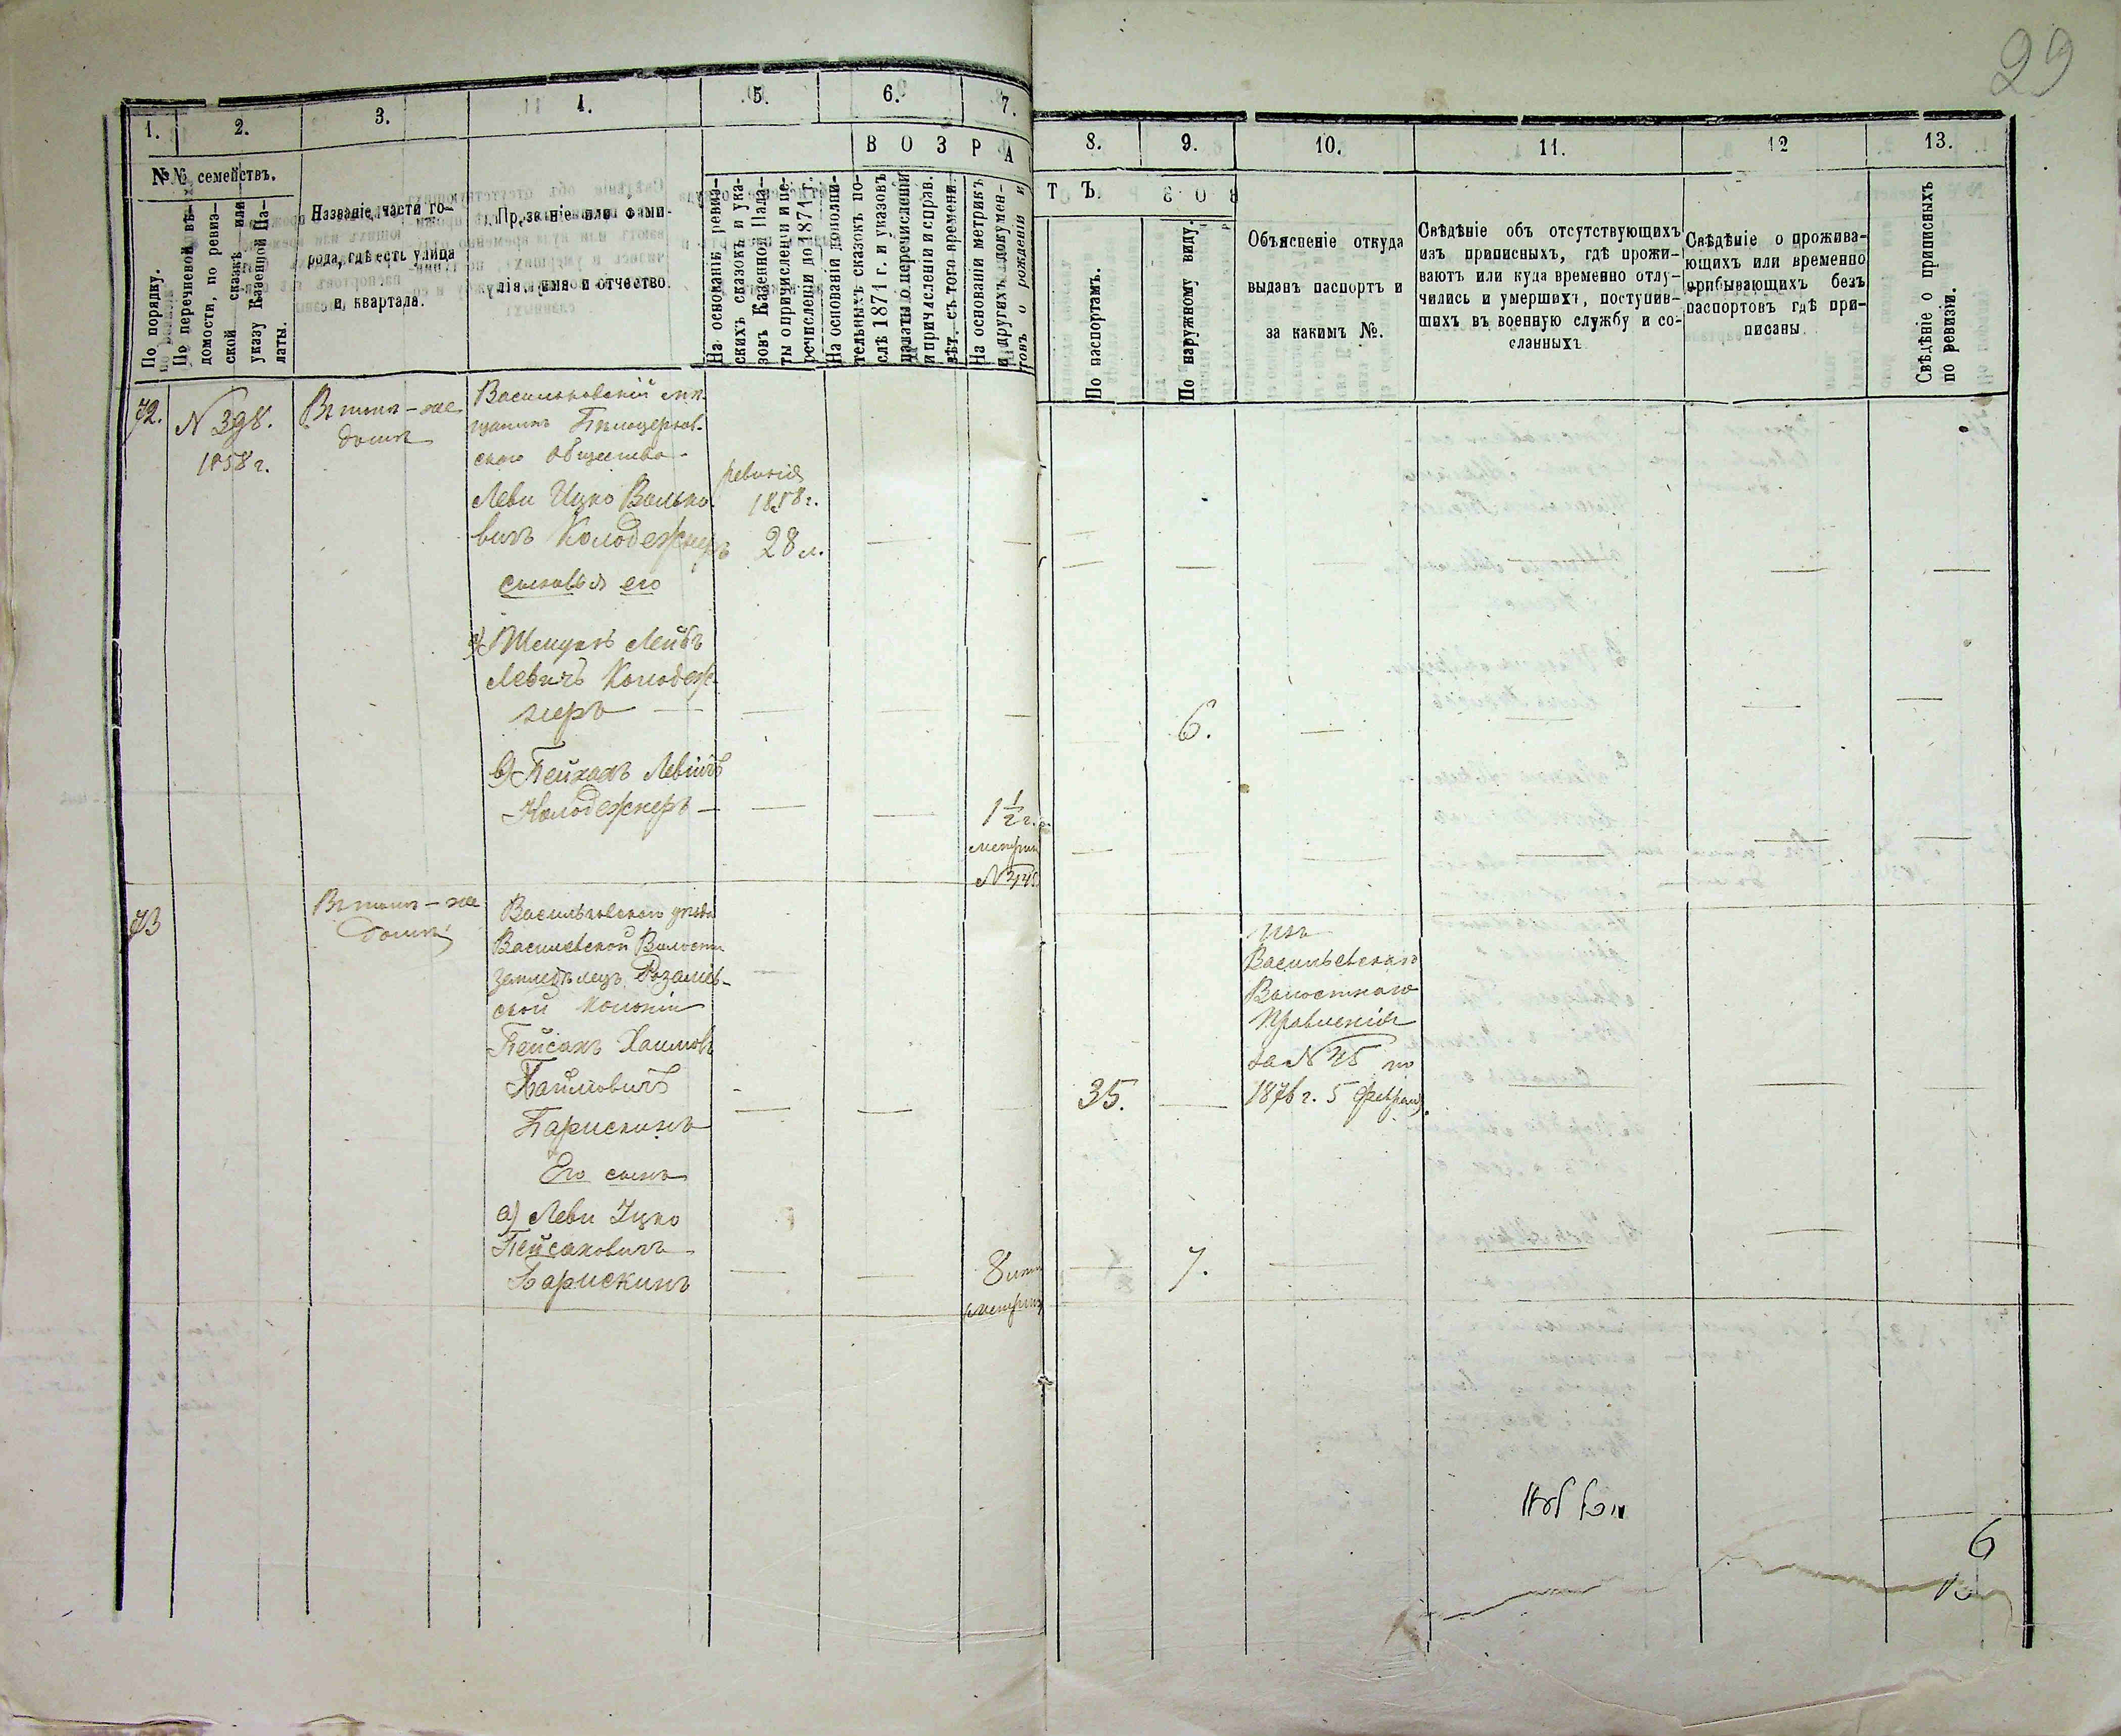 29
1. 2. 3. 4. 5. 6. 7. 8. 9. 10. 11. 12 13.
В О З Р А Т Ъ.
№№ семействъ.
По порядку.
По перечневой вѣ-
домости, по ревиз-
ской сказкѣ или
указу Казенной Па-
латы.
Названіе части го-
рода, гдѣ есть улица
и квартала.
Прозваніе или фами-
лія, имя и отчество.
На основаніи ревиз-
скихъ сказокъ и ука-
зовъ Казенной Пала-
ты о причисленіи и пе-
речисленіи до 1871 г.
На основаніи дополни-
тельныхъ сказокъ по-
слѣ 1871 г. и указовъ
палаты о перечисленіи
и причисленіи и справ.
вѣт. съ того времени.
На основаніи метрикъ
и другихъ докумен-
товъ о рожденіи и
По паспортамъ.
По наружному виду.
Объясненіе откуда
выданъ паспортъ и
за какимъ №.
Свѣдѣніе объ отсутствующихъ
изъ приписныхъ, гдѣ прожи-
ваютъ или куда временно отлу-
чились и умершихъ, поступив-
шихъ въ военную службу и со-
сланныхъ
Свѣдѣніе о прожива-
ющихъ или временно
прибывающихъ безъ
паспортовъ гдѣ при-
писаны
Свѣдѣніе о приписныхъ
по ревизіи.
72.
N 398.
1858 г.
Въ томъ-же
домѣ
Васильковскій мѣ-
щанинъ Бѣлоцерков-
скаго общества
Леви Ицко Волько-
вичъ Колодежнеръ
ревизія
1858 г.
28 л.
сыновья его
а) Лейбъ
Левичъ Колодеж-
неръ
6.
в) Левичъ
Колодежнеръ
1 1/2 г.
метрик
73
Въ томъ-же
домѣ
Васильковскаго уѣзда
Василевской Волости
земледѣлецъ
ской колоніи
Пейсахъ Хаимовъ
Его сынъ
а) Леви Ицко
Пейсаховичъ
Барискинъ
35.
изъ
Васильевскаго
Волостнаго
Правленія
за N 45 по
1876 г. 5 Феврал.
8 лѣтъ
метрик
7.
6